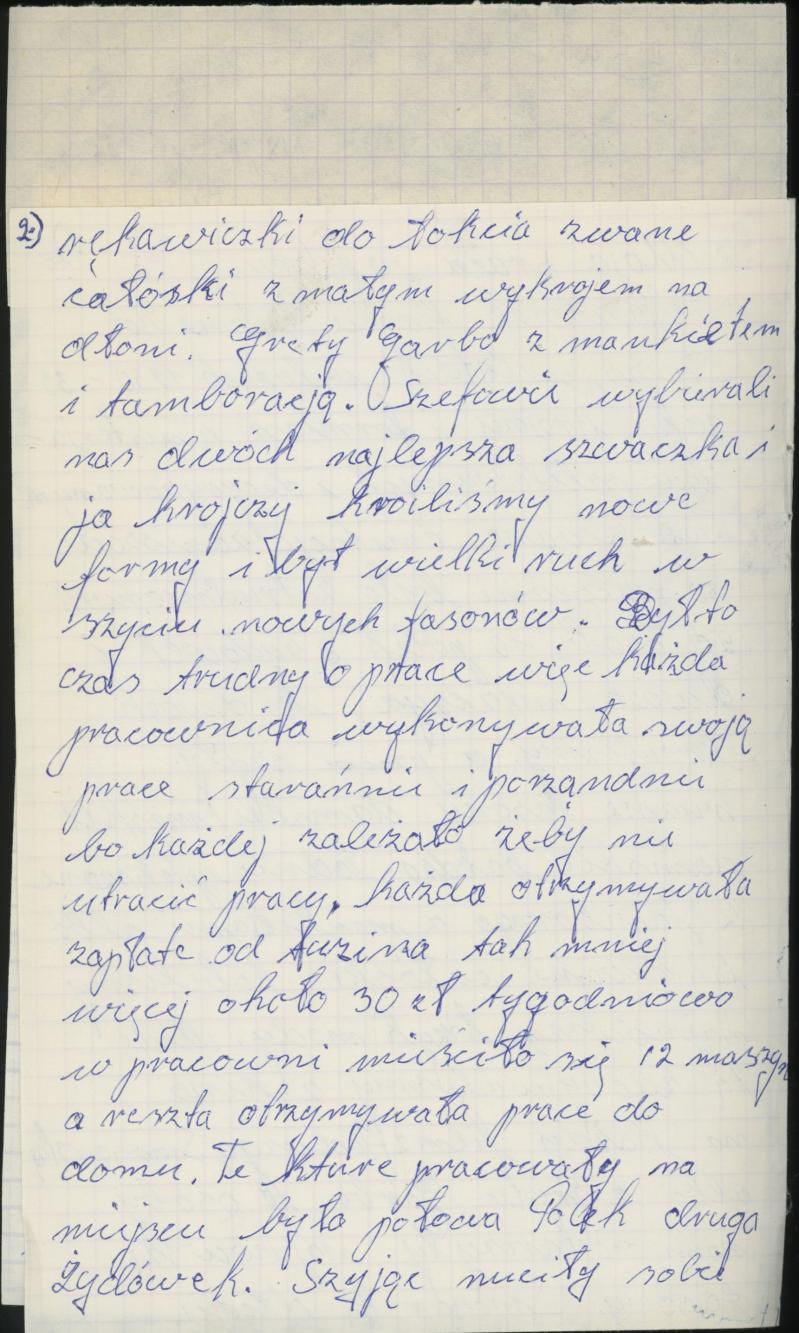 2) rękawiczki do łokcia zwane
całóski z małym wykrojem na
dłoni. Grety Garbo z mankietem
i tamboracją. Szefowie wybierali
nas dwóch najlepsza szwaczka i
ja krojczy kroiliśmy nowe
formy i był wielki ruch w
szyciu nowych fasonów. Był to
czas trudny o prace więc każda
pracownica wykonywała swoją
prace starannie i porzandnie
bo każdej zależało żeby nie
utracić pracy, każda otrzymywała
zapłate od tuzina tak mniej
więcej około 30 zł tygodniowo
w pracowni mieściło się 12 maszyn
a reszta otrzymywała prace do
domu. Te kture pracowały na
miejscu było połowa Polek druga
Żydówek. Szyjąc nuciły sobie